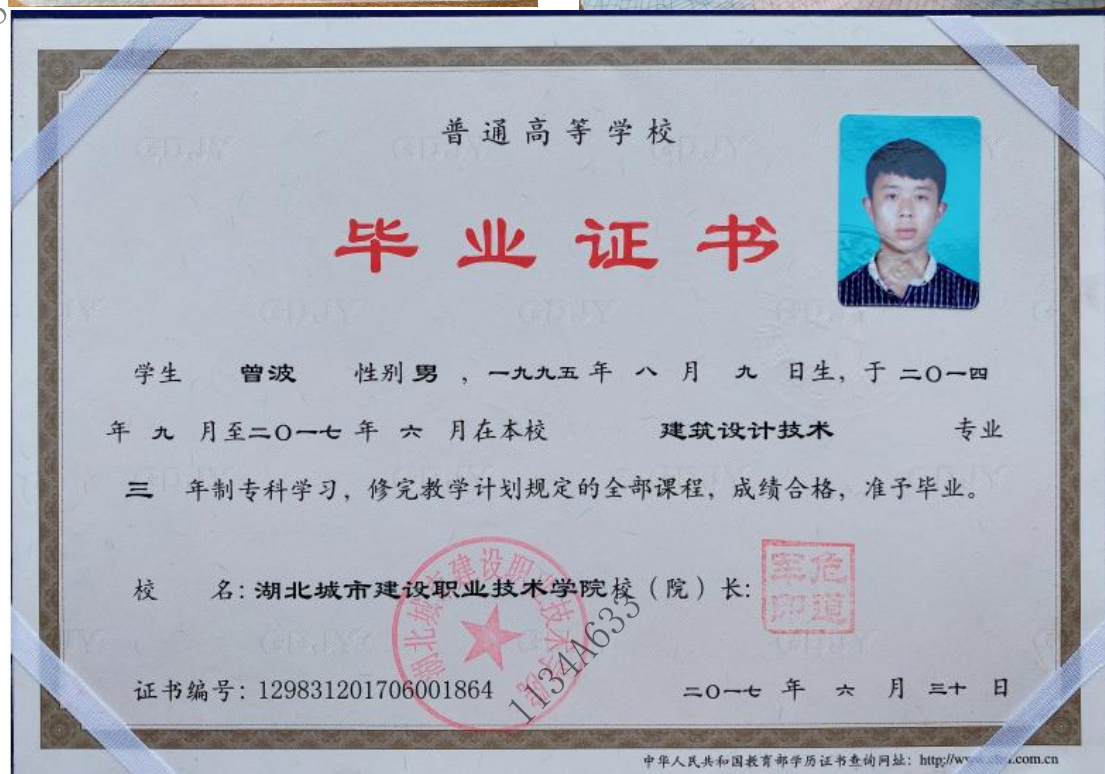 普通高等学校
毕业证书
学生 曾波 性别 男 ，一九九五 年 八 月 九 日生，于 二〇一四
年 九 月至二〇一七 年 六 月在本校 建筑设计技术 专业
三 年制专科学习，修完教学计划规定的全部课程，成绩合格，准予毕业。
校 名：湖北城市建设职业技术学院 校（院）长：
危道军印
湖北城市建设职业技术学院
1134A633
证书编号：129831201706001864 二〇一七 年 六 月 三十 日
中华人民共和国教育部学历证书查询网址：http://www.chsi.com.cn